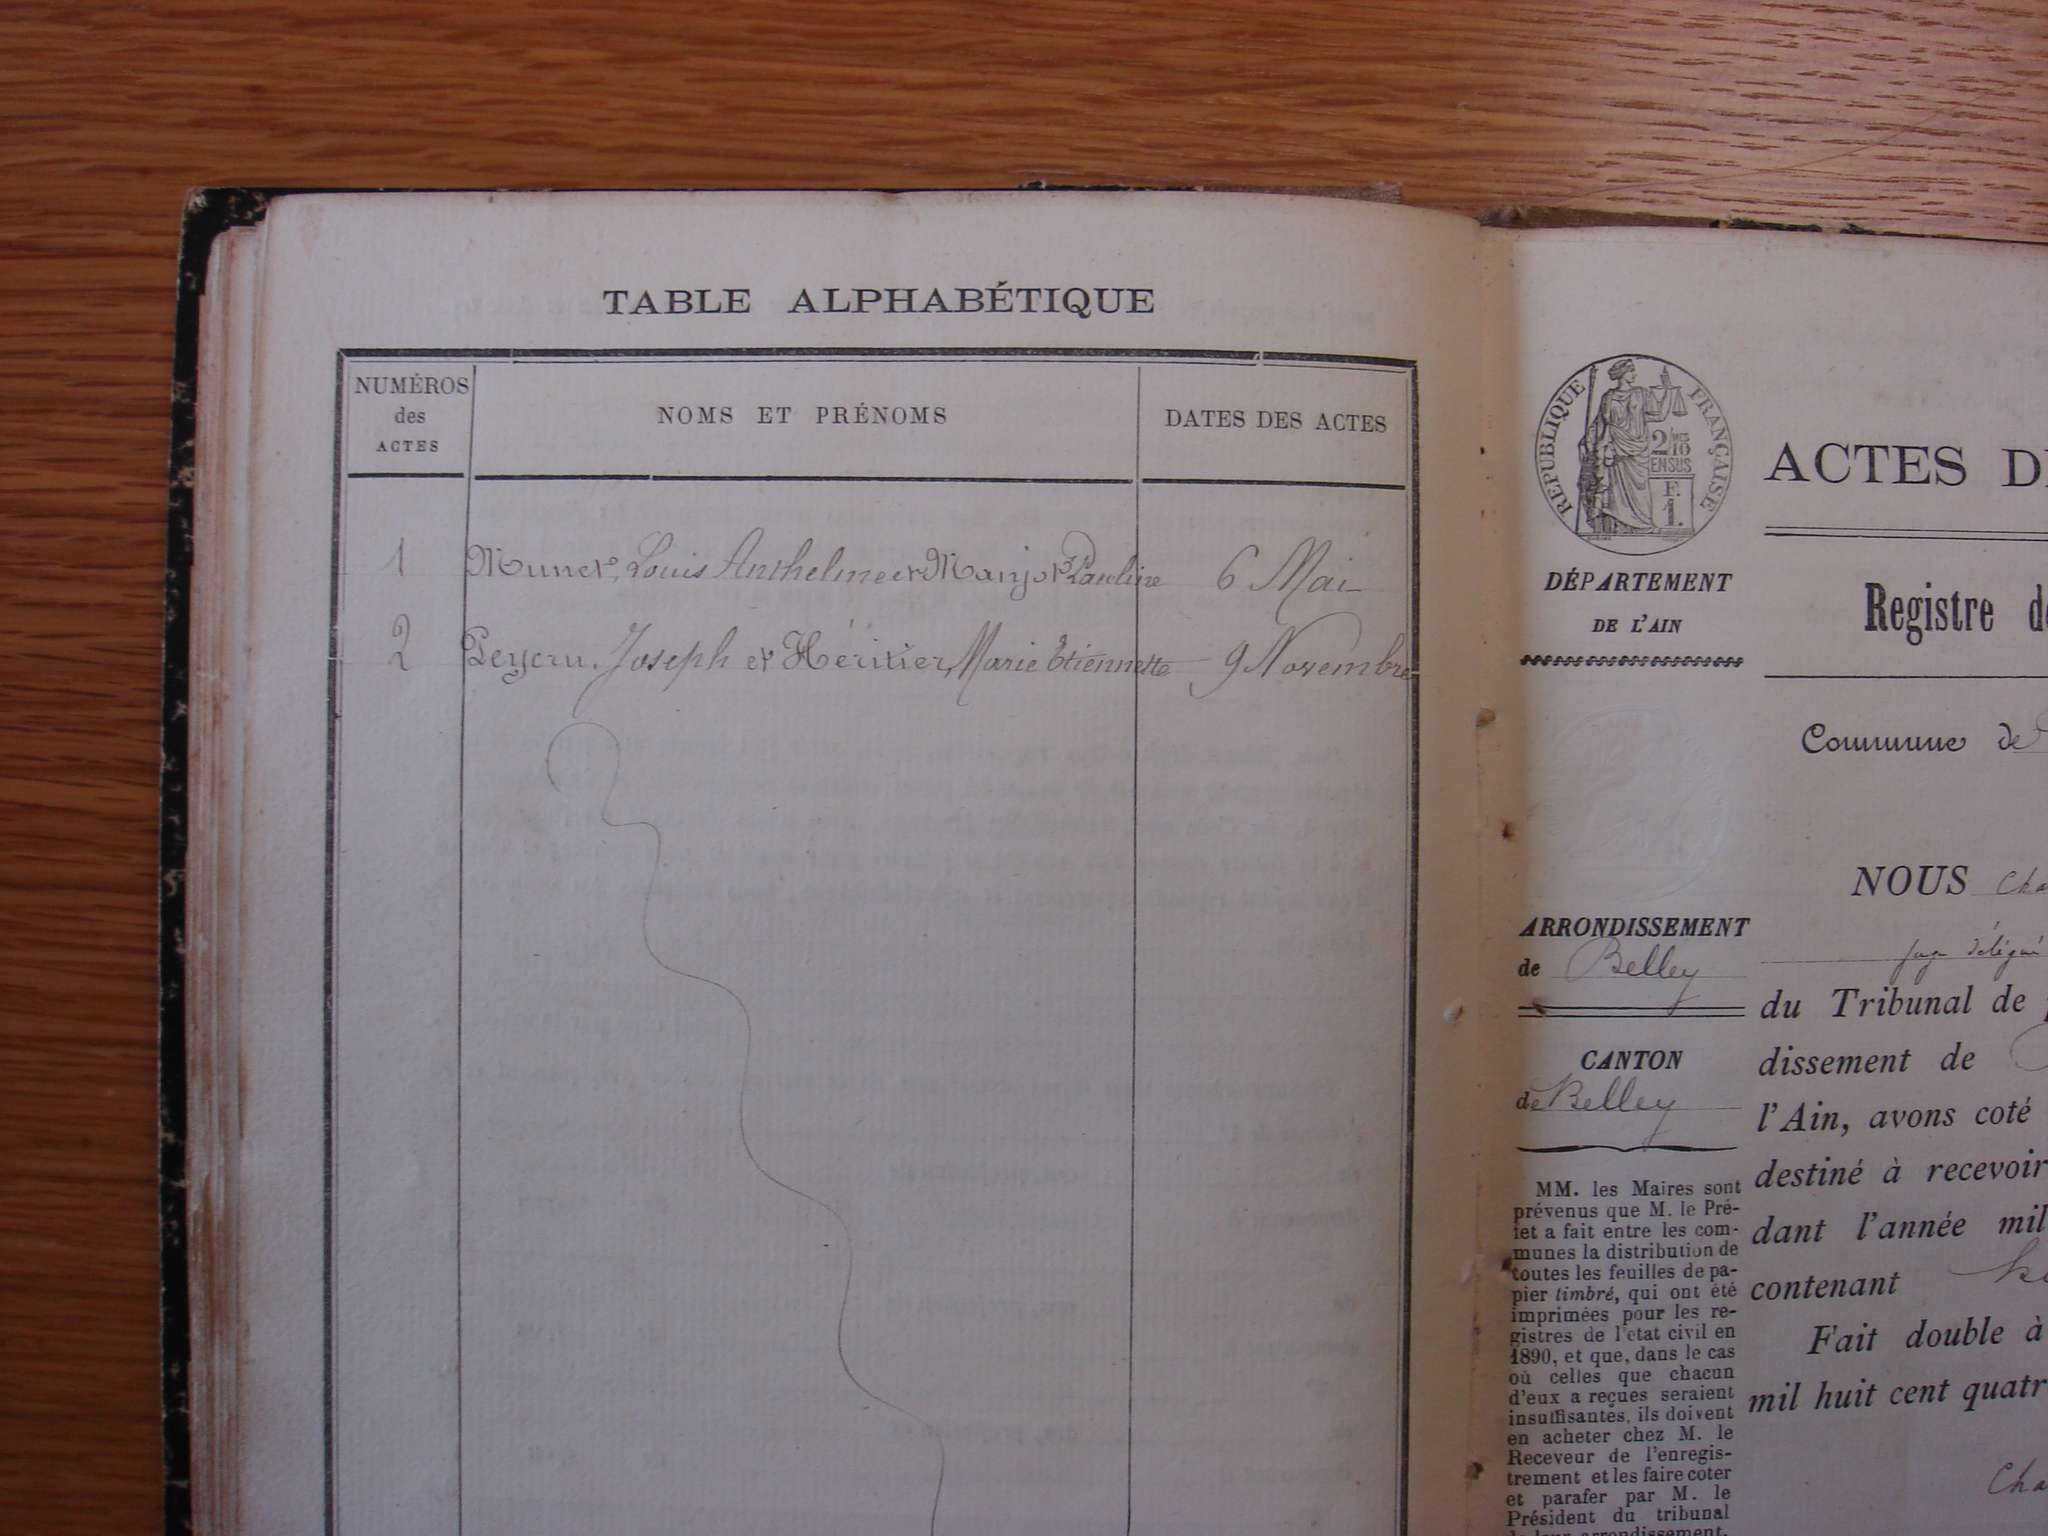 TABLE ALPHABÉTIQUE
NUMÉROS
des
ACTES
NOMS ET PRÉNOMS
DATES DES ACTES
1 Munet, Louis Anthelme et Manjot Pauline 6 Mai
2 Peycru, Joseph et Héritier, Marie Etiennette 9 Novembre
RÉPUBLIQUE FRANÇAISE
2/10 MES
EN SUS
F.
1.
DÉPARTEMENT
DE L'AIN
ARRONDISSEMENT
de Belley
CANTON
de Belley
MM. les Maires sont
prévenus que M. le Pré-
fet a fait entre les com-
munes la distribution de
toutes les feuilles de pa-
pier timbré, qui ont été
imprimées pour les re-
gistres de l'état civil en
1890, et que, dans le cas
où celles que chacun
d'eux a reçues seraient
insuffisantes, ils doivent
en acheter chez M. le
Receveur de l'enregis-
trement et les faire coter
et parafer par M. le
Président du tribunal
de leur arrondissement.
ACTES DE
Registre de
Commune de
NOUS Cha
juge délégué
du Tribunal de
dissement de
l'Ain, avons coté
destiné à recevoir
dant l'année mil
contenant
Fait double à
mil huit cent quatr
Cha